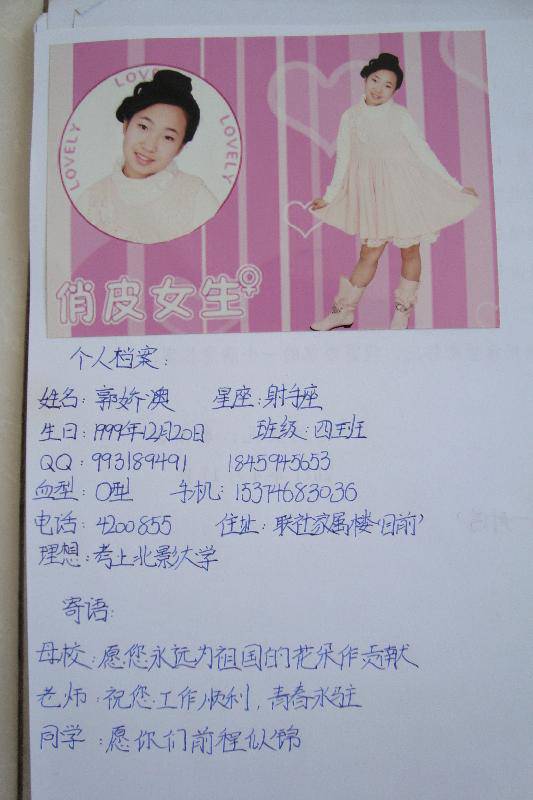 LOVELY
LOVELY
LOVELY
俏皮女生
个人档案:
姓名: 郭娇澳 星座: 射手座
生日: 1999年12月20日 班级: 四五班
QQ: 993189491 1845945653
血型: O型 手机: 15374683036
电话: 4200855 住址: 联社家属楼(目前)
理想: 考上北影大学
寄语:
母校: 愿您永远为祖国的花朵作贡献
老师: 祝您工作顺利, 青春永驻
同学: 愿你们前程似锦